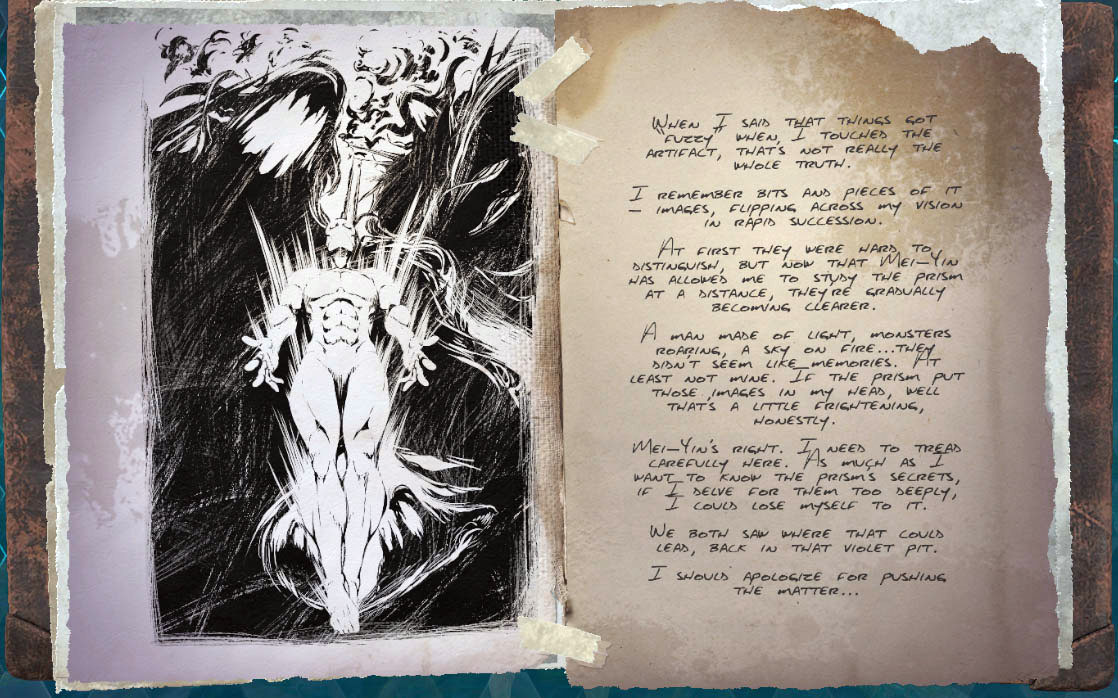 When I said that things got
"fuzzy" when I touched the
artifact, that's not really the
whole truth.
I remember bits and pieces of it
– images, flipping across my vision
in rapid succession.
At first they were hard to
distinguish, but now that Mei-Yin
has allowed me to study the prism
at a distance, they're gradually
becoming clearer.
A man made of light, monsters
roaring, a sky on fire...they
didn't seem like memories. At
least not mine. If the prism put
those images in my head, well
that's a little frightening,
honestly.
Mei-Yin's right. I need to tread
carefully here. As much as I
want to know the prism's secrets,
if I delve for them too deeply,
I could lose myself to it.
We both saw where that could
lead, back in that violet pit.
I should apologize for pushing
the matter...